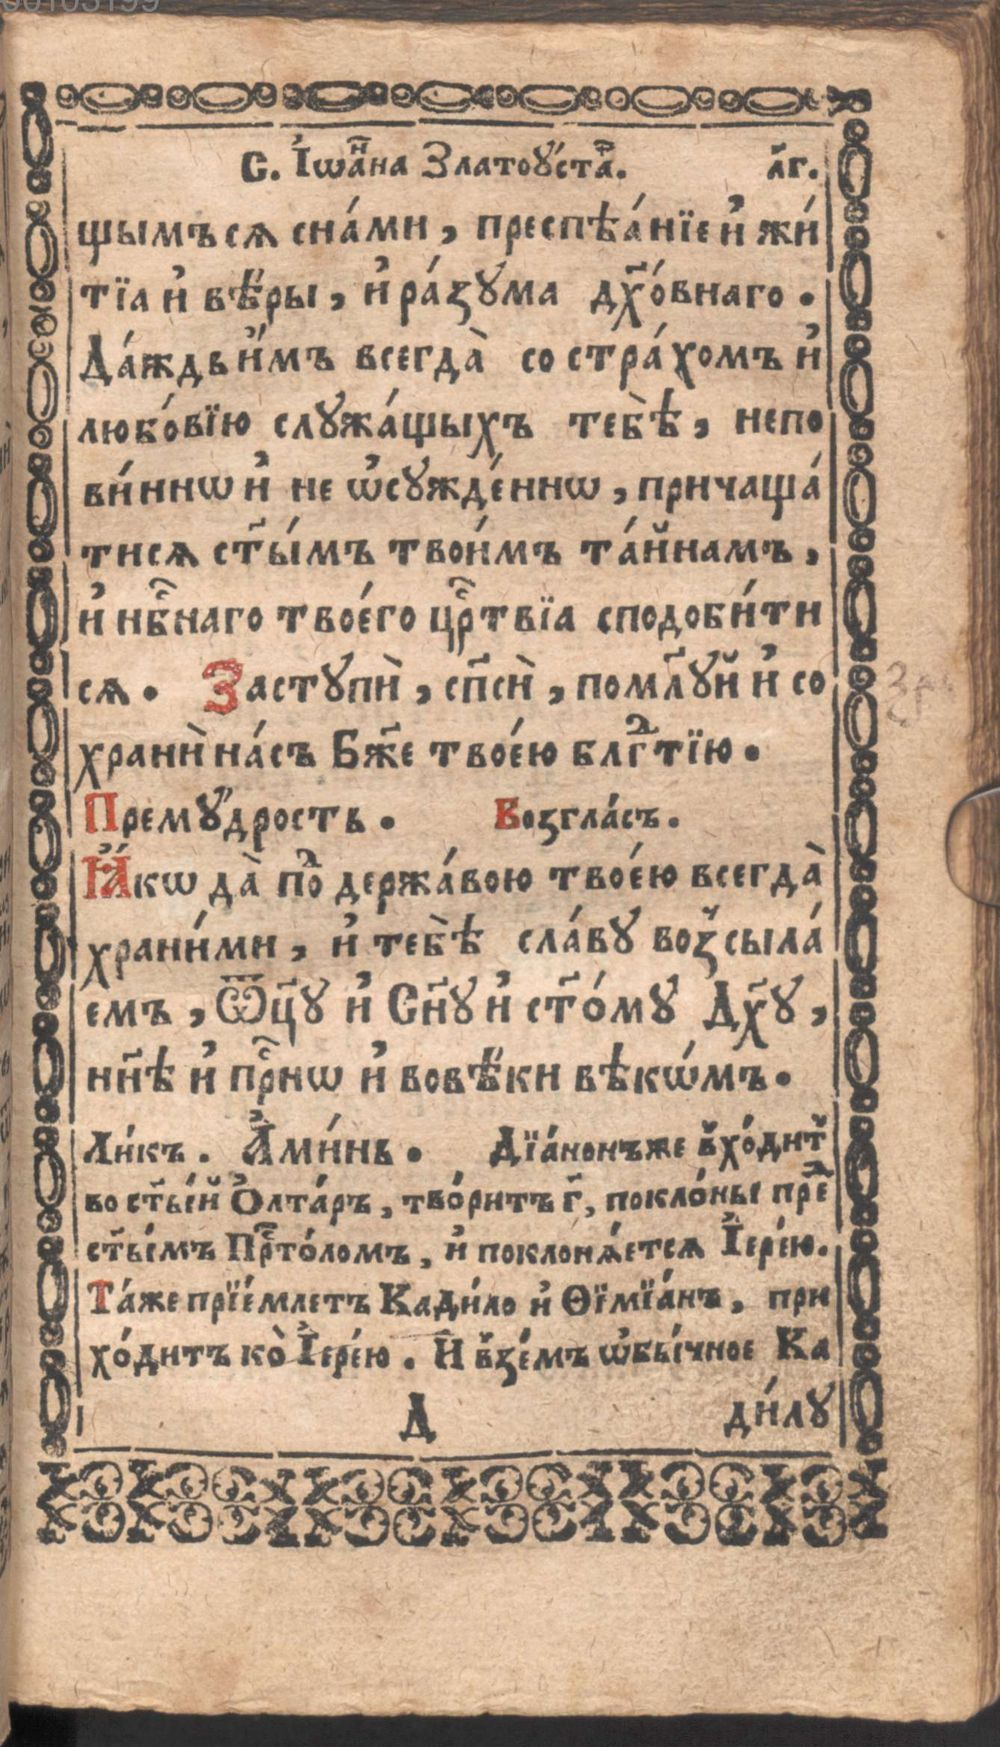 00103199
С. І҆ѡа́нⷩ҇а Златоꙋ́стаⷢ҇. л҃г.
щымъсѧ сна́ми, преспѣѧ́нїе и҆ жи́
тїа и҆ вѣ́ры, и҆ ра́зꙋма дх҃о́внаго.
Да́ждь и҆̀мъ всегда̀ со стра́хомъ и҆
любо́вїю слꙋжа́щыхъ тебѣ̀, непо
ви́ннѡ и҆ не ѡ҆сꙋжде́ннѡ, причаща́
тисѧ ст҃ы́мъ твои́мъ та́йнамъ,
и҆ нбⷭ҇наго твоего̀ црⷭ҇твїа сподоби́ти
сѧ. Застꙋпѝ, сп҃сѝ, помл҃ꙋй и҆ со
хранѝ на́съ Бж҃е твое́ю блгⷣтїю.
Премꙋ́дрость. Возгла́съ.
Ꙗ҆́кѡ да̀ поⷣ держа́вою твое́ю всегда̀
храни́ми, и҆ тебѣ̀ сла́вꙋ воз̾сыла́
емъ, Ѿц҃ꙋ и҆ Сн҃ꙋ и҆ ст҃о́мꙋ Дх҃ꙋ,
нн҃ѣ и҆ прⷭ҇нѡ и҆ вовѣ́ки вѣкѡ́мъ.
Ли́къ. А҆ми́нь. Дїа́конъже в̾хо́дит̾
во ст҃ы́й О҆лта́рь, тво́ритъ г҃, покло́ны преⷣ
ст҃ы́мъ Прⷭ҇то́ломъ, и҆ поклонѧ́етсѧ І҆ере́ю.
Та́же прїе́млетъ Кади́ло и҆ Ѳїмїа́нъ, при
хо́дитъ ко̀ І҆ере́ю. И҆ в̾зе́мъ ѡ҆бы́чное Ка
Д ди́лꙋ